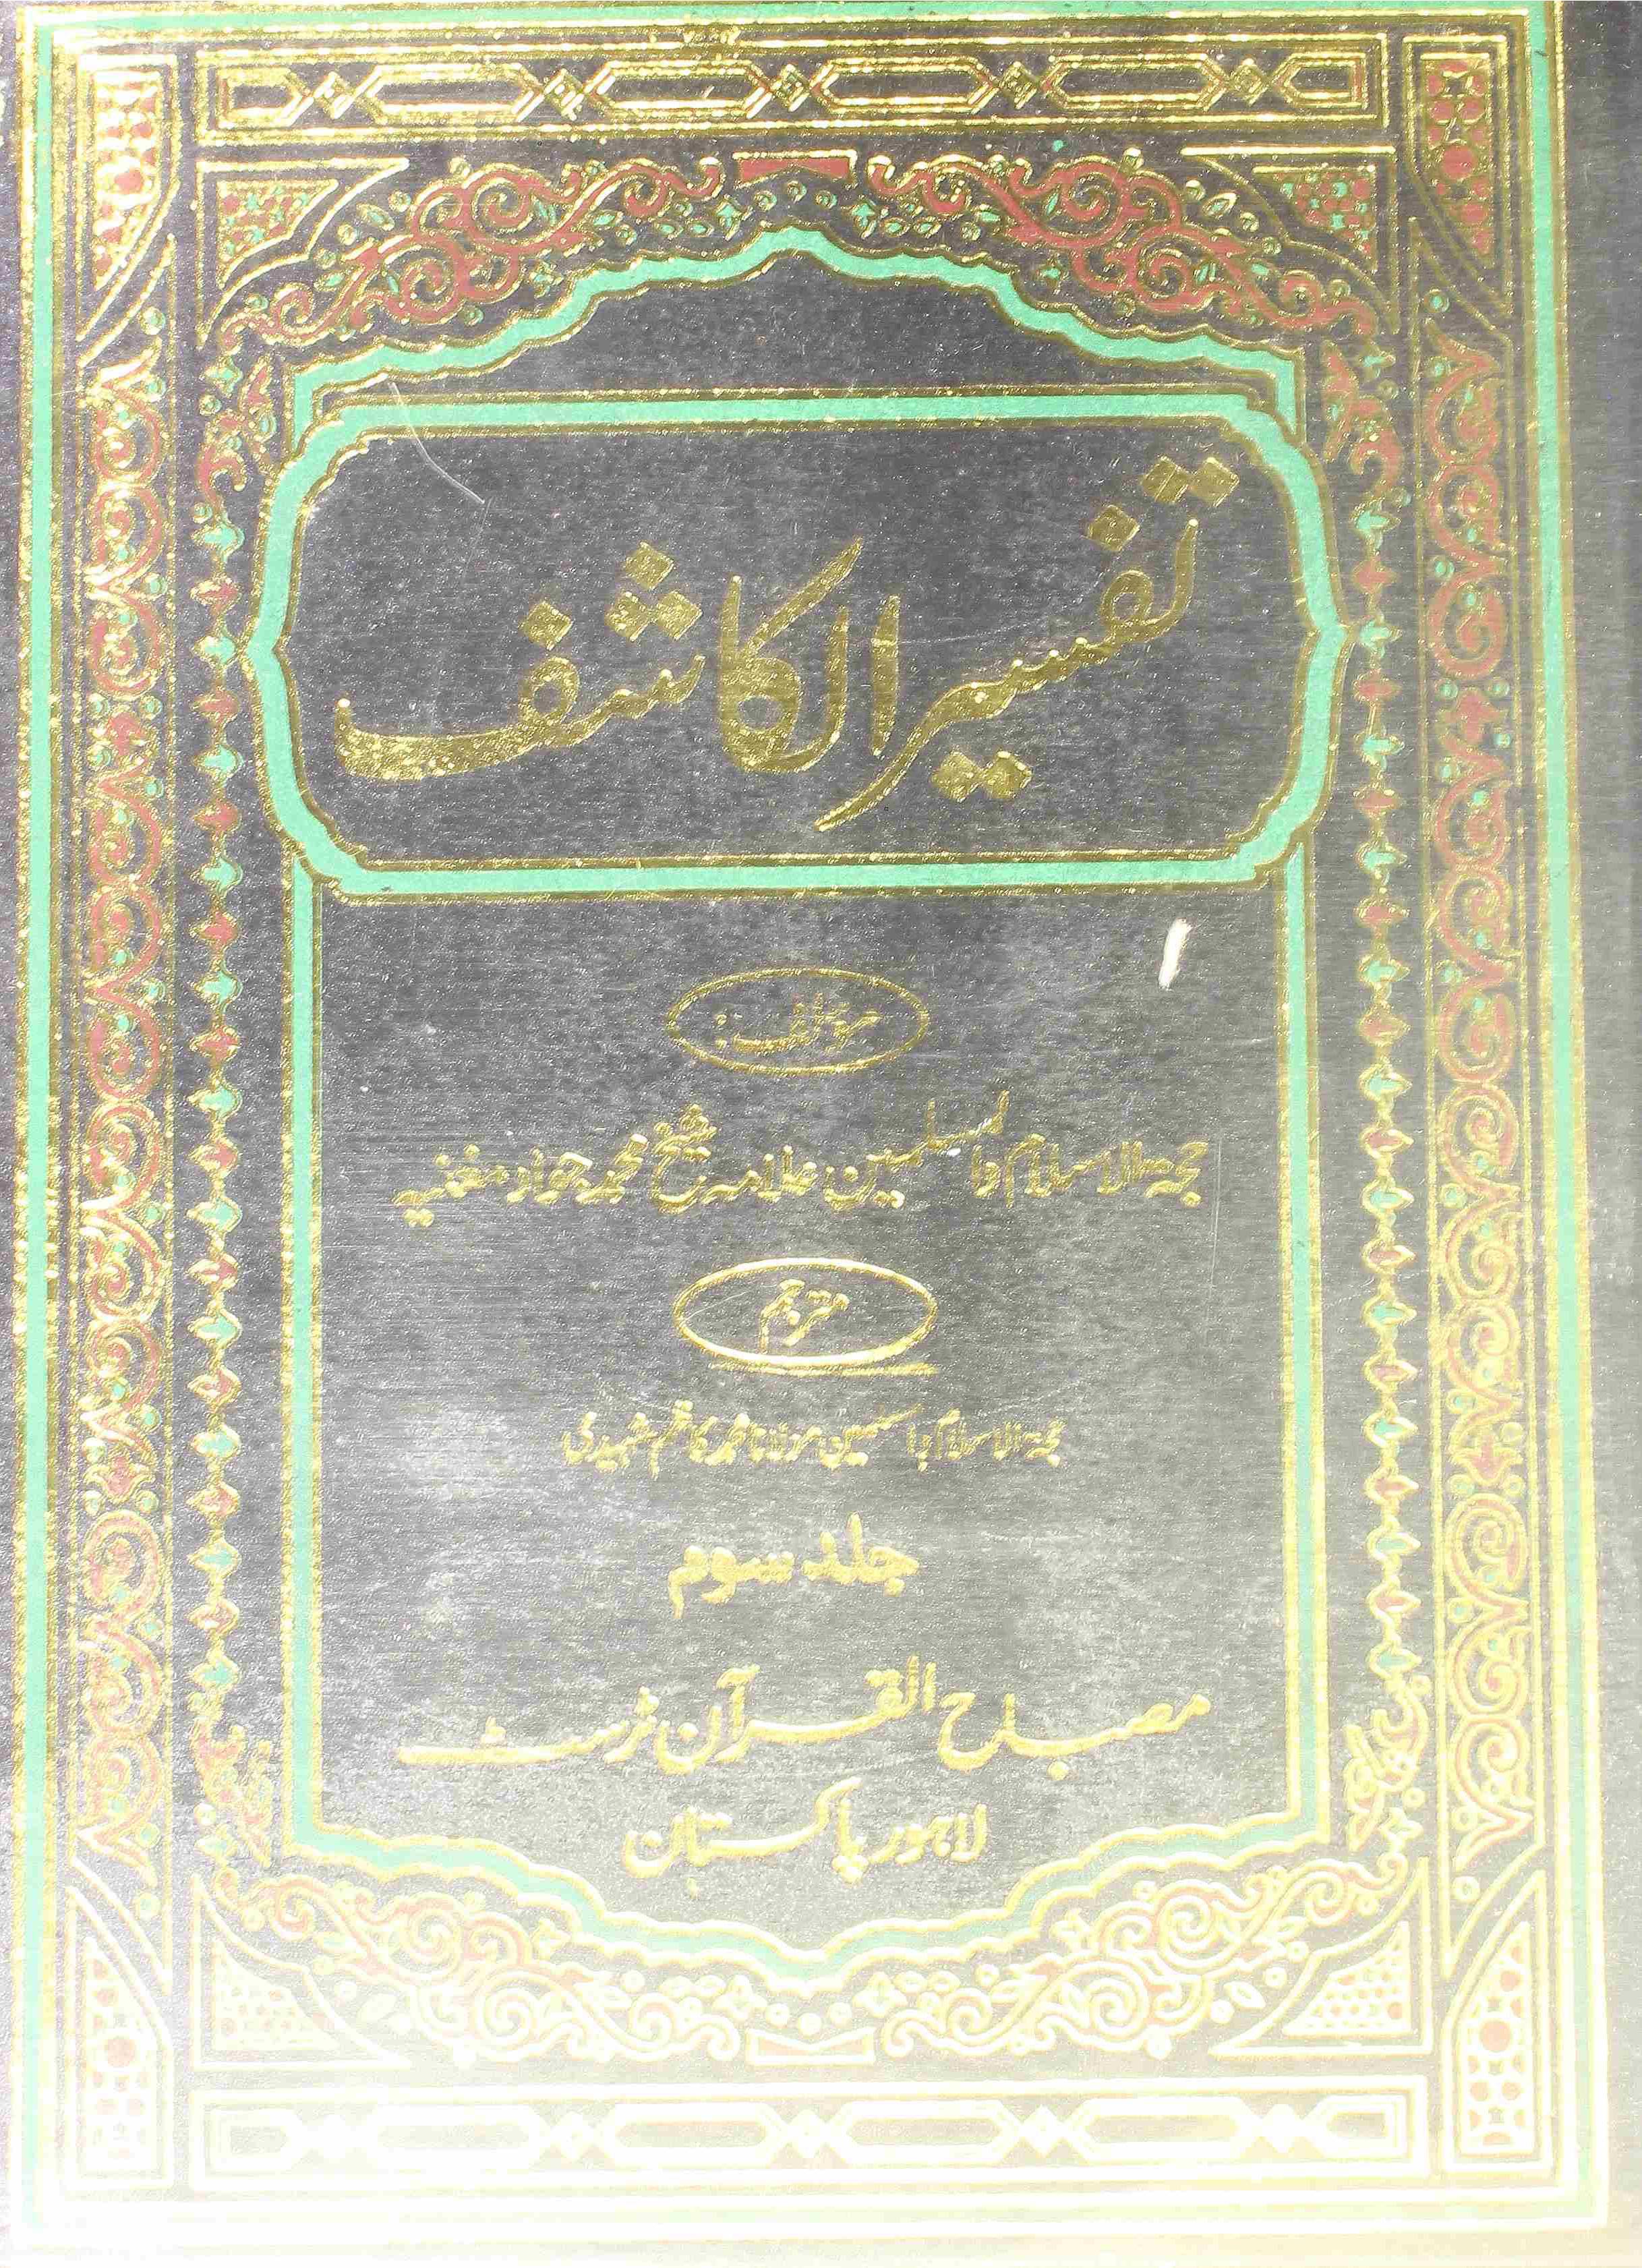 تفسیر الکاشف
مؤلف:
حجۃ الاسلام والمسلمین علامہ شیخ محمد جواد مغنیہ
مترجم
حجۃ الاسلام والمسلمین مولانا محمد کاظم شہیدی
جلد سوم
مصباح القرآن ٹرسٹ
لاہور پاکستان